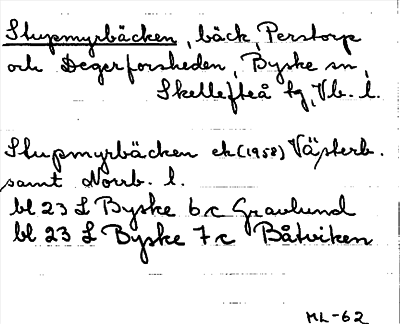 Slupmyrbäcken, bäck, Perstorp
och Degerforsheden, Byske sn,
Skellefteå tg, Vb. l.
Slupmyrbäcken ek (1958) Västerb.
samt Norrb. l.
bl 23 L Byske 6c Gravlund
bl 23 L Byske 7c Båtviken
ML-62